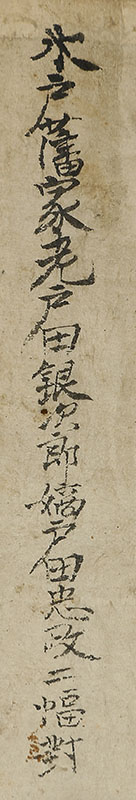 水戸藩家老戸田銀次郎嫡戸田忠政二幅對